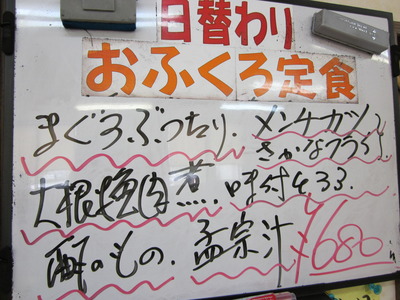 日替わり
おふくろ定食
まぐろぶつ切り．メンチカツと
さかなフライ．
大根塩肉煮．味付とろろ
酢のもの．孟宗汁 ¥680